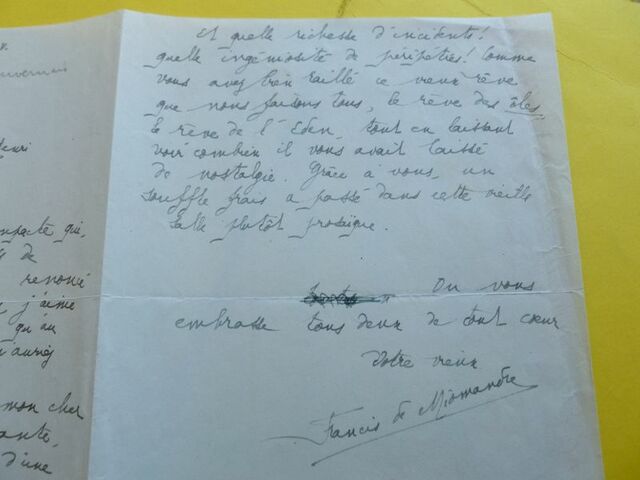 v.
ouvernais
enri
mpacte qui,
de
renoué
j'aime
qu'au
n'auriez
mon cher
ante,
d'une
Et quelle richesse d'incidents!
quelle ingéniosité de péripéties! Comme
vous avez bien raillé ce vieux rêve
que nous faisons tous, le rêve des îles,
le rêve de l'Eden, tout en laissant
voir combien il vous avait laissé
de nostalgie. Grâce à vous, un
souffle frais a passé dans cette vieille
salle plutôt prosaïque.
On vous
embrasse tous deux de tout cœur
Votre vieux
Francis de Miomandre